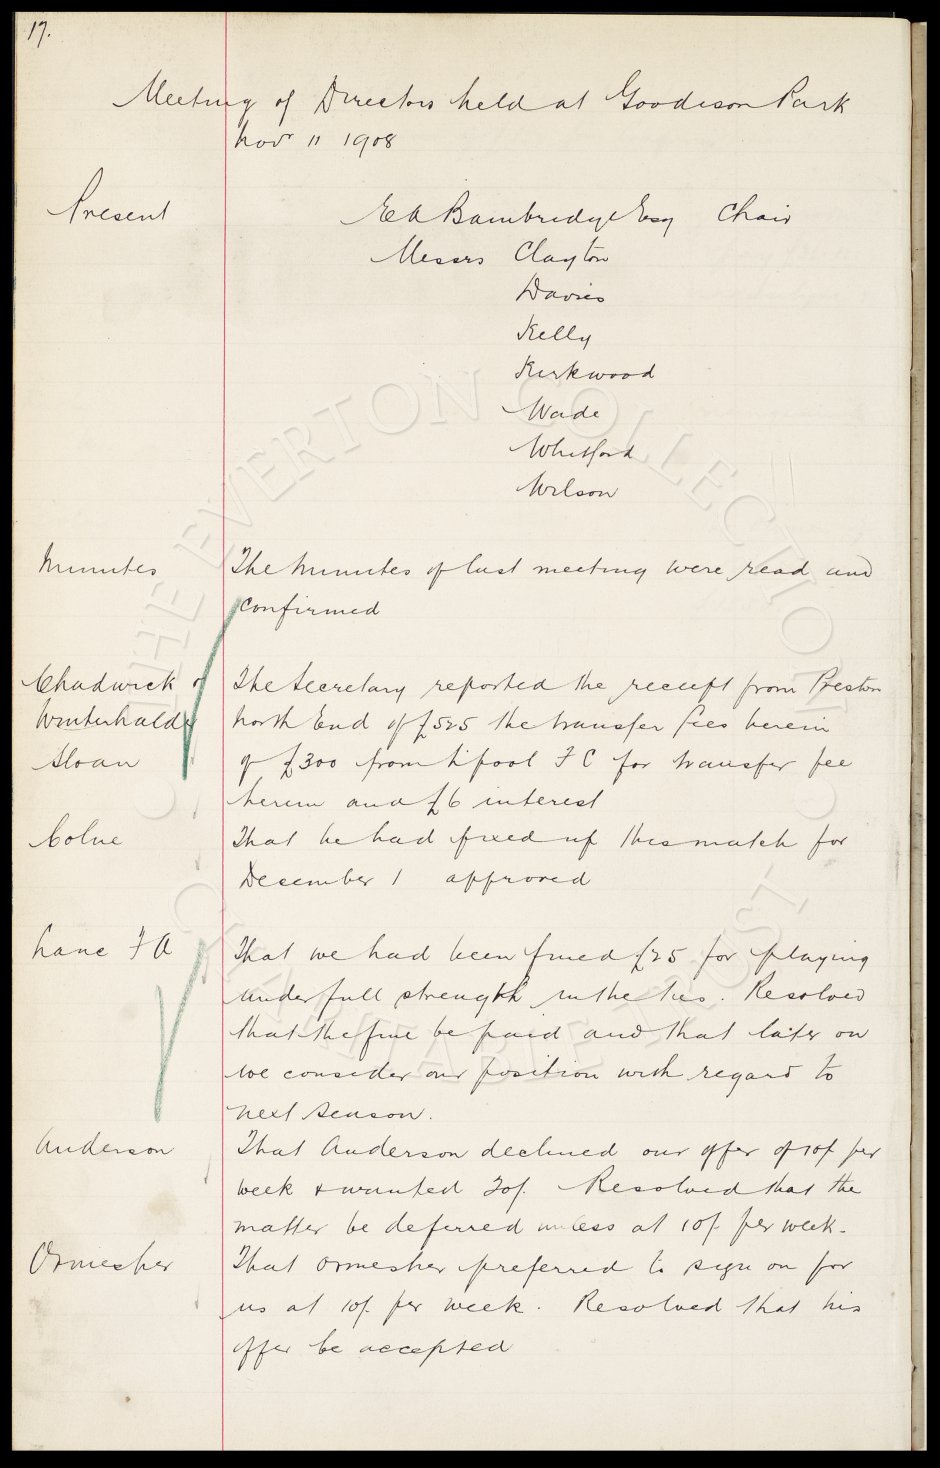 17.
Meeting of Directors held at Goodison Park
Novr 11 1908
Present E A Bainbridge Esq Chair
Messrs Clayton
Davies
Kelly
Kirkwood
Wade
Whitford
Wilson
Minutes The Minutes of last meeting were read and
confirmed
Chadwick & The Secretary reported the receipt from Preston
Winterhalder North End of £525 the transfer fees herein
Sloan & £300 from L'pool F C for transfer fee
herein and £6 interest
Colne That he had fixed up this match for
December 1 approved
Lanc F A That we had been fined £25 for playing
under full strength in the ties. Resolved
that the fine be paid and that later on
we consider our position with regard to
next season.
Anderson That Anderson declined our offer of 10/- per
week & wanted 20/-. Resolved that the
matter be deferred unless at 10/- per week.
Ormesher That Ormesher preferred to sign on for
us at 10/- per week. Resolved that his
offer be accepted
THE EVERTON COLLECTION
CHARITABLE TRUST